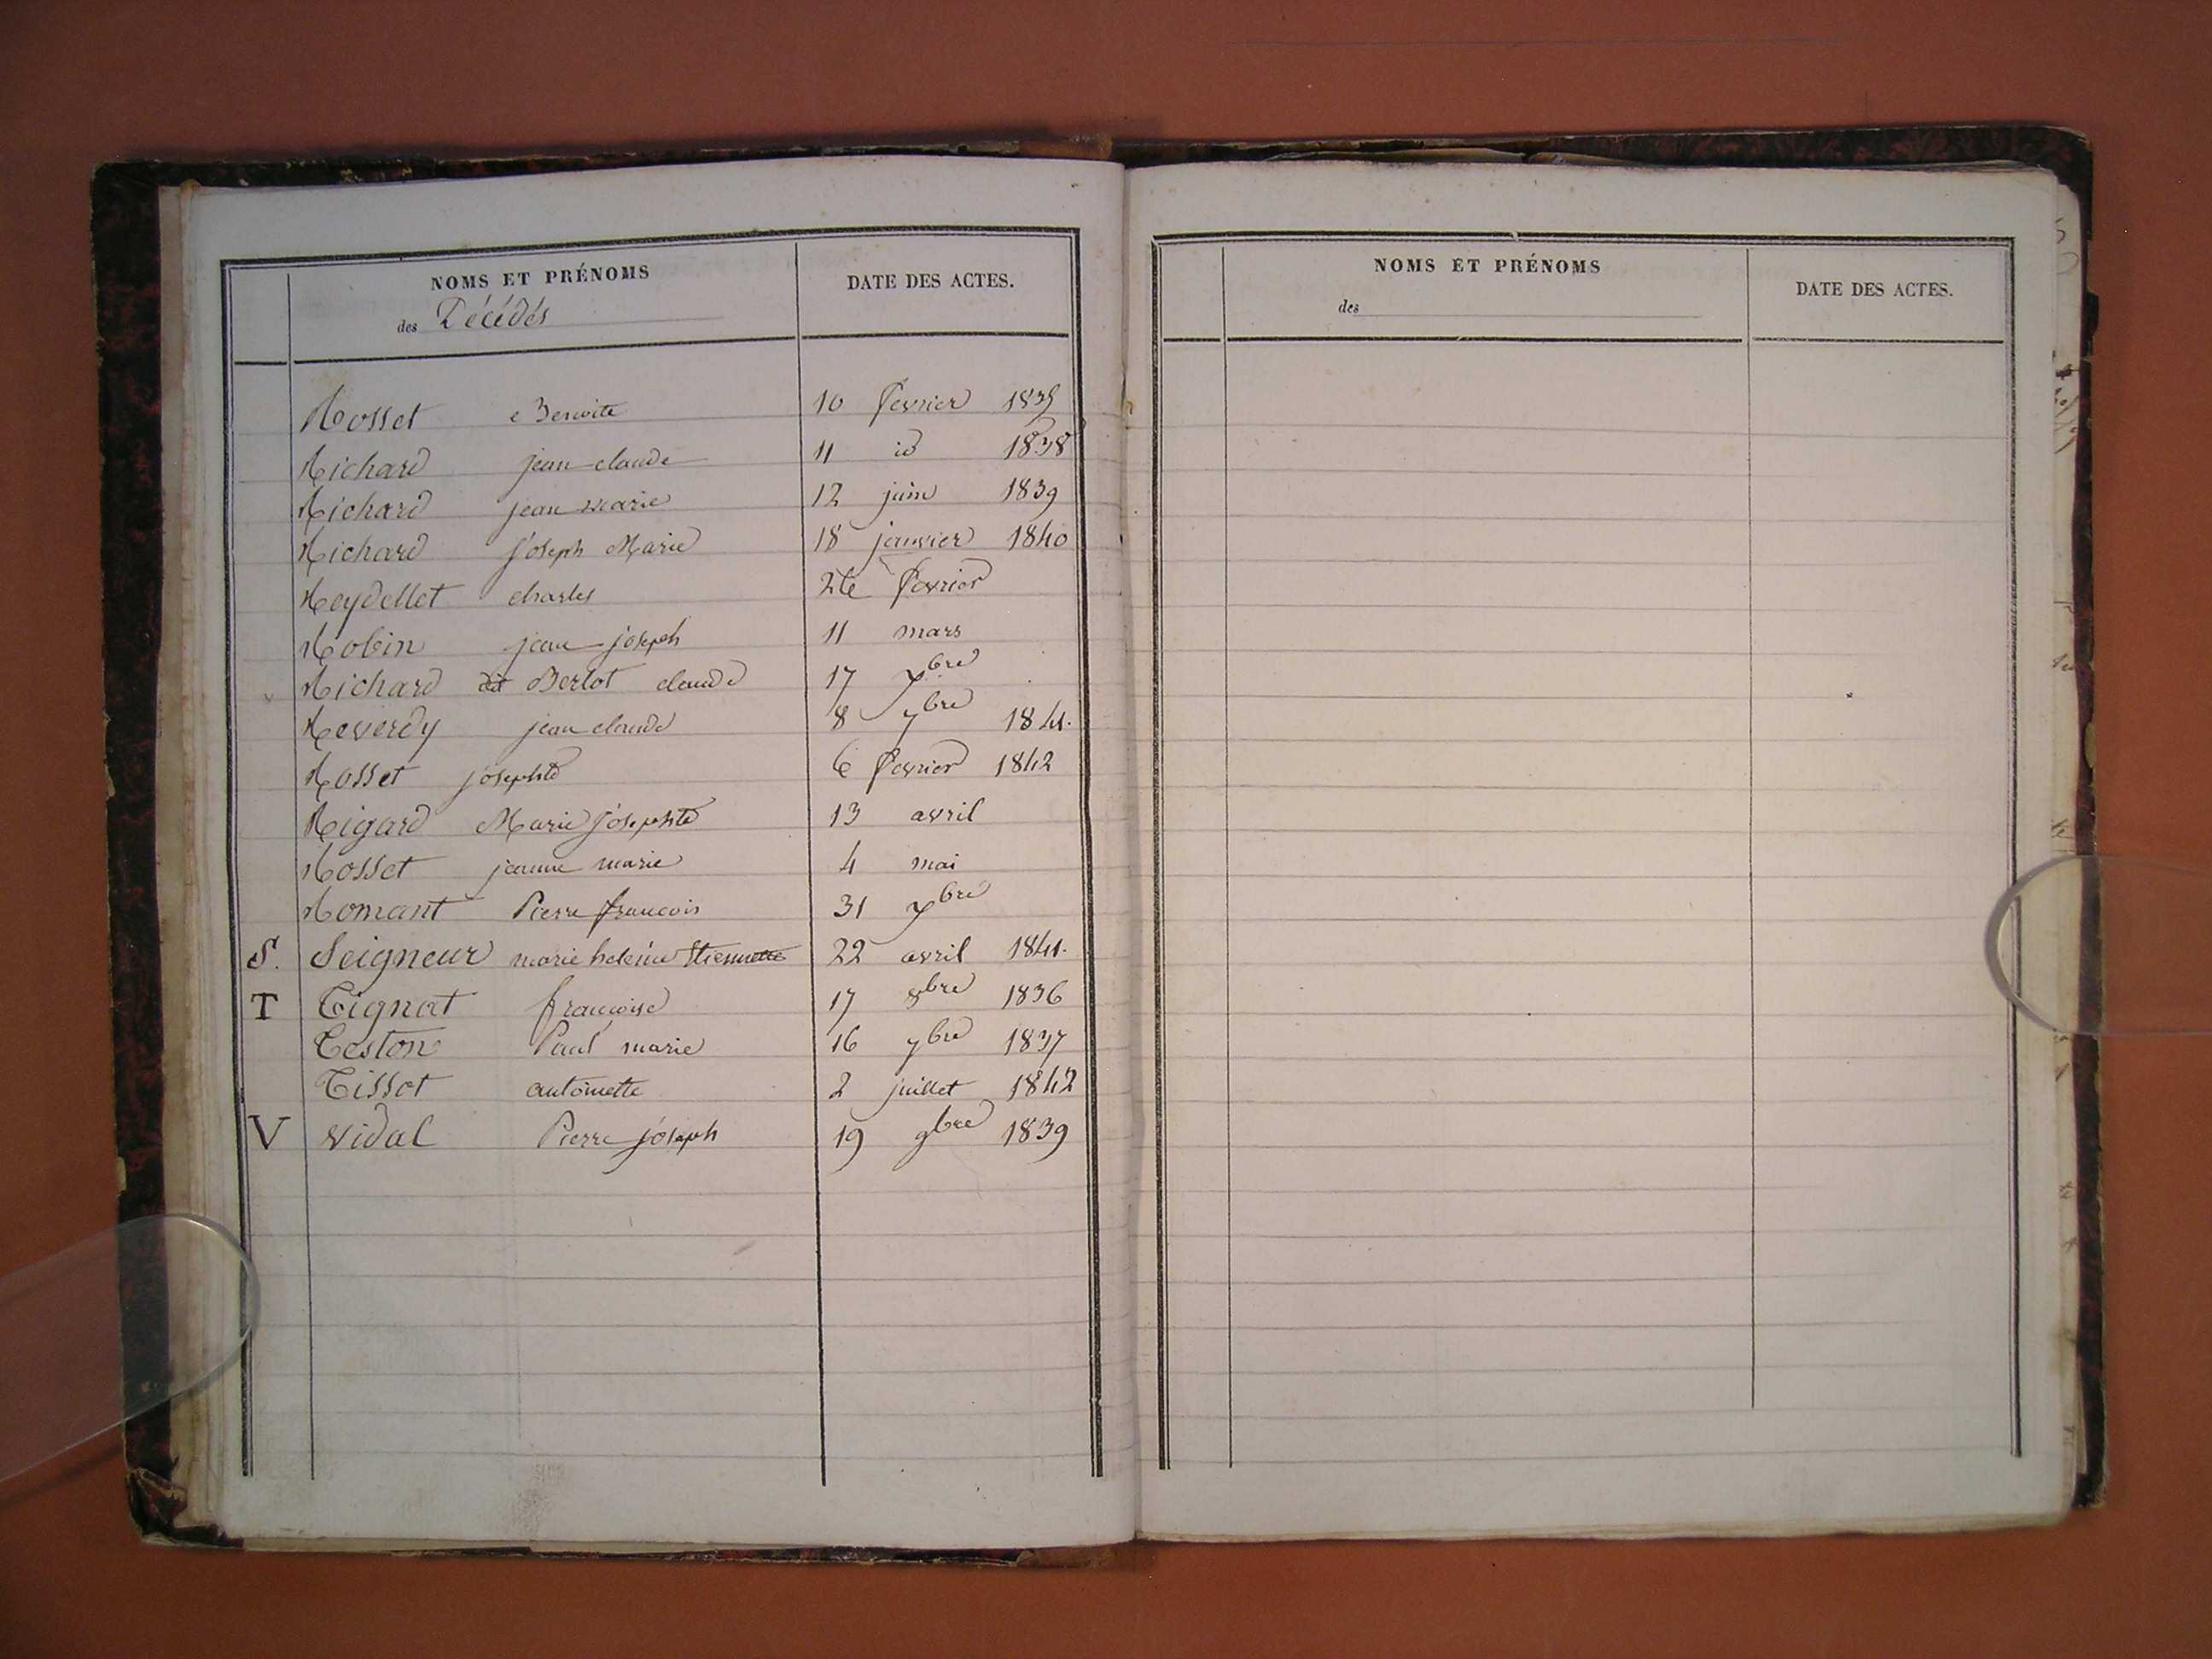 NOMS ET PRÉNOMS
des Décédés
DATE DES ACTES.
Rosset Benoite 10 fevrier
Richard jean claude 11 id 1838
Richard jean marie 12 juin 1839
Richard joseph Marie 18 janvier 1840
Reydellet charles 26 fevrier
Robin jean joseph 11 mars
Richard dit Berlot claude 17 xbre
Reverdy jean claude 8 7bre 1841.
Rosset josephte 6 fevrier 1842
Rigard Marie josephte 13 avril
Rosset jeanne marie 4 mai
Romant Pierre francois 31 xbre
S. Seigneur marie helene Etiennette 22 avril 1841.
T Tignat francoise 17 8bre 1836
Teston Paul marie 16 7bre 1837
Tissot antoinette 2 juillet 1842
V Vidal Pierre joseph 19 9bre 1839
NOMS ET PRÉNOMS
des
DATE DES ACTES.